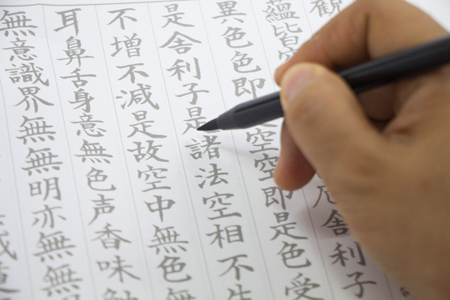 観
蘊皆厄舎利子
異色色即空空即是色受
是舎利子是諸法空相不生
不増不減是故空中無色
耳鼻舌身意無色声香味
無意識界無無明亦無無